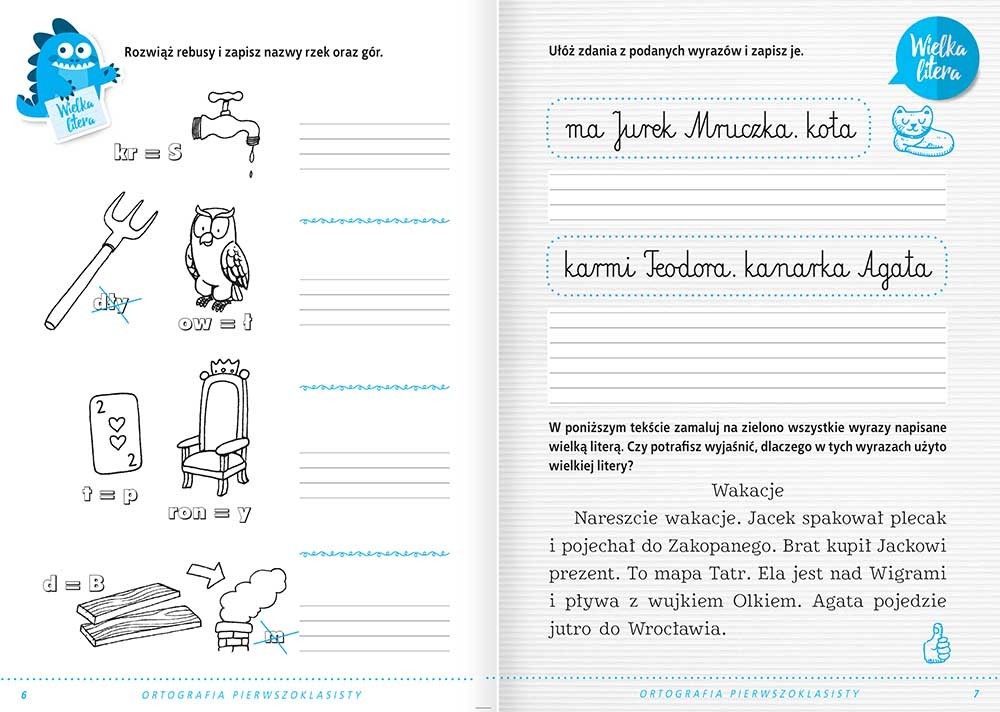 Wielka
litera
Rozwiąż rebusy i zapisz nazwy rzek oraz gór.
kr = S
dły
ow = ł
2
2
t = p
ron = y
d = B
m
6
ORTOGRAFIA PIERWSZOKLASISTY
Ułóż zdania z podanych wyrazów i zapisz je.
Wielka
litera
ma Jurek Mruczka. kota
karmi Teodora. kanarka Agata
W poniższym tekście zamaluj na zielono wszystkie wyrazy napisane
wielką literą. Czy potrafisz wyjaśnić, dlaczego w tych wyrazach użyto
wielkiej litery?
Wakacje
Nareszcie wakacje. Jacek spakował plecak
i pojechał do Zakopanego. Brat kupił Jackowi
prezent. To mapa Tatr. Ela jest nad Wigrami
i pływa z wujkiem Olkiem. Agata pojedzie
jutro do Wrocławia.
ORTOGRAFIA PIERWSZOKLASISTY
7